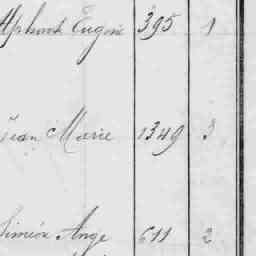 Alphonse Eugène 395 1
Jean Marie 1349 3
Siméon Ange 611 2